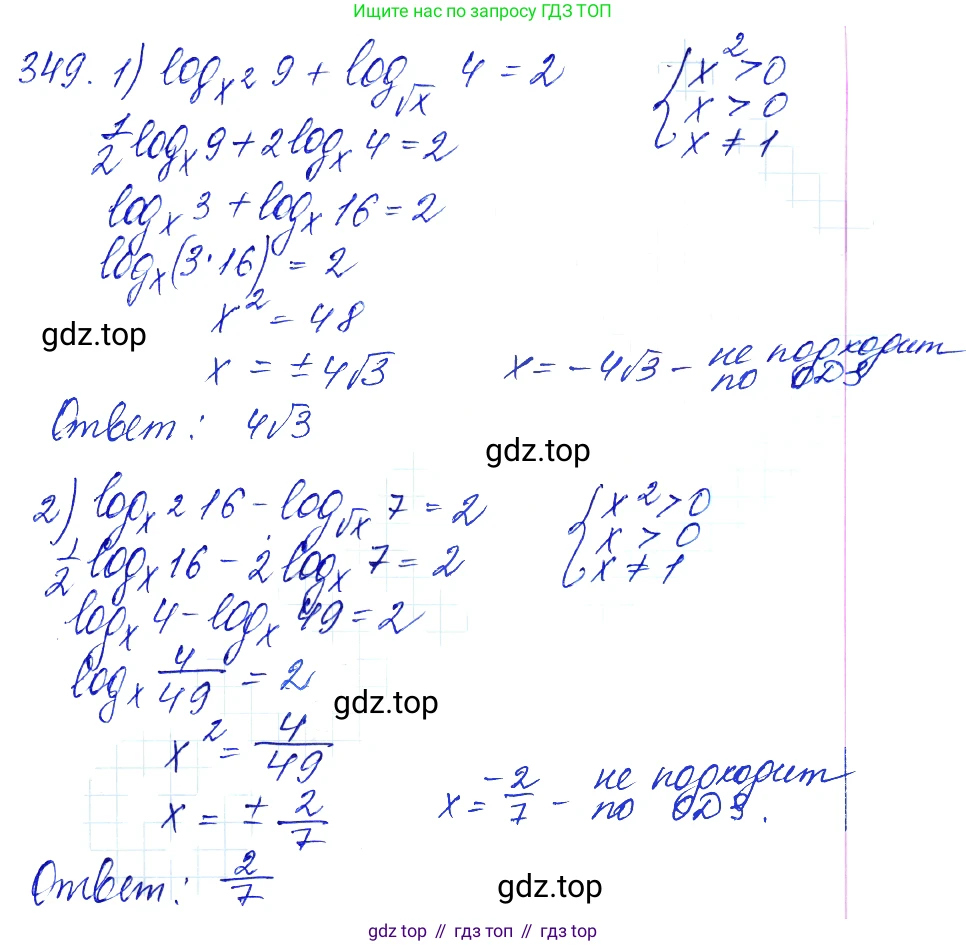 Ищите нас по запросу ГДЗ ТОП
349. 1) log_{x^2} 9 + log_{√x} 4 = 2
{ x^2 > 0
x > 0
x ≠ 1
1/2 log_x 9 + 2 log_x 4 = 2
log_x 3 + log_x 16 = 2
log_x (3 · 16) = 2
x^2 = 48
gdz.top
x = ± 4√3
x = - 4√3 - не подходит
по ОДЗ
Ответ: 4√3
gdz.top
2) log_{x^2} 16 - log_{√x} 7 = 2
{ x^2 > 0
x > 0
x ≠ 1
1/2 log_x 16 - 2 log_x 7 = 2
log_x 4 - log_x 49 = 2
log_x 4/49 = 2
gdz.top
x^2 = 4/49
x = ± 2/7
x = -2/7 - не подходит
по ОДЗ.
Ответ: 2/7
gdz.top
gdz top // гдз топ // gdz top